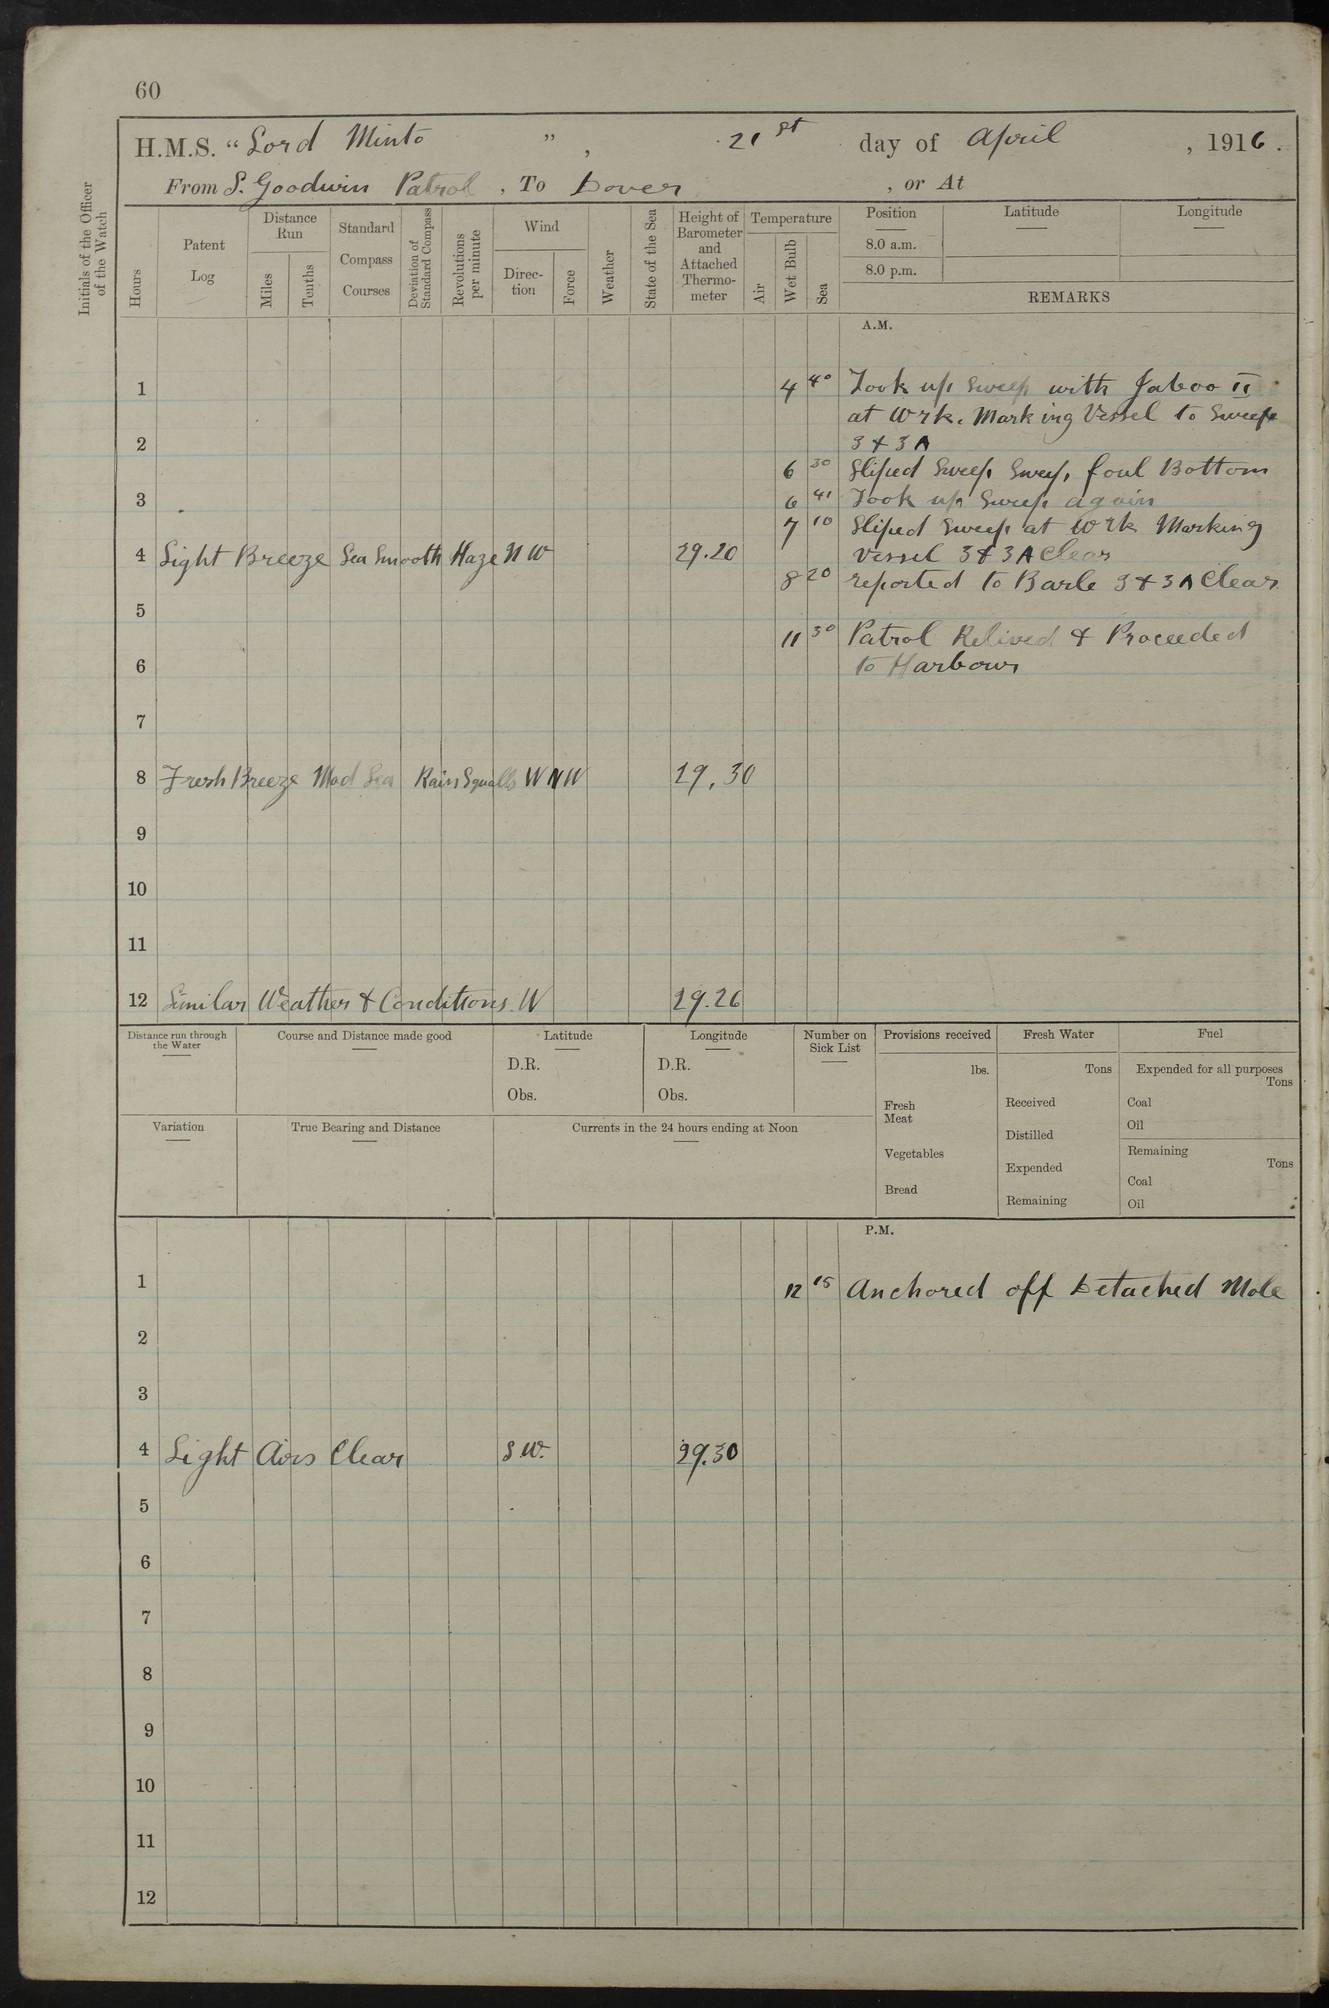 60
H.M.S. “Lord Minto ”, 21st day of April, 1916.
From S. Goodwin Patrol, To Dover, or At
Initials of the Officer of the Watch
Hours
Patent Log
Distance Run
Miles
Tenths
Standard Compass Courses
Deviation of Standard Compass
Revolutions per minute
Wind
Direction
Force
Weather
State of the Sea
Height of Barometer and Attached Thermometer
Temperature
Air
Wet Bulb
Sea
Position
8.0 a.m.
8.0 p.m.
Latitude
Longitude
REMARKS
A.M.
1 4 40 Took up Sweep with Jaboo II
at Wrk. Marking Vessel to Sweep
2 3 & 3A
6 30 Sliped Sweep Sweep, foul Bottom
3 6 41 Took up Sweep again
7 10 Sliped Sweep at Wrk Marking
4 Light Breeze Sea Smooth Haze NW 29.20 Vessel 3 & 3A Clear
8 20 reported to Barle 3 & 3A Clear
5
11 30 Patrol Relived & Proceeded
6 to Harbour
7
8 Fresh Breeze Mod Sea Rain Squalls WNW 29.30
9
10
11
12 Similar Weather & Conditions. W 29.26
Distance run through the Water
Course and Distance made good
Latitude
D.R.
Obs.
Longitude
D.R.
Obs.
Number on Sick List
Provisions received
lbs.
Fresh Meat
Vegetables
Bread
Fresh Water
Tons
Received
Distilled
Expended
Remaining
Fuel
Expended for all purposes
Tons
Coal
Oil
Remaining
Tons
Coal
Oil
Variation
True Bearing and Distance
Currents in the 24 hours ending at Noon
P.M.
1 12 15 Anchored off Detached Mole
2
3
4 Light Airs Clear S.W. 29.30
5
6
7
8
9
10
11
12